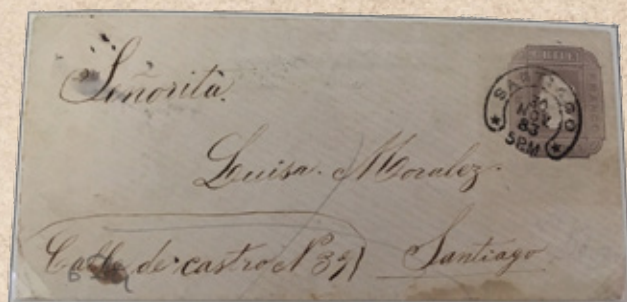 Señorita.
Luisa. Moralez.
Calle de castro Nº 39
Santiago
SANTIAGO
30
NOV
83
5 P.M